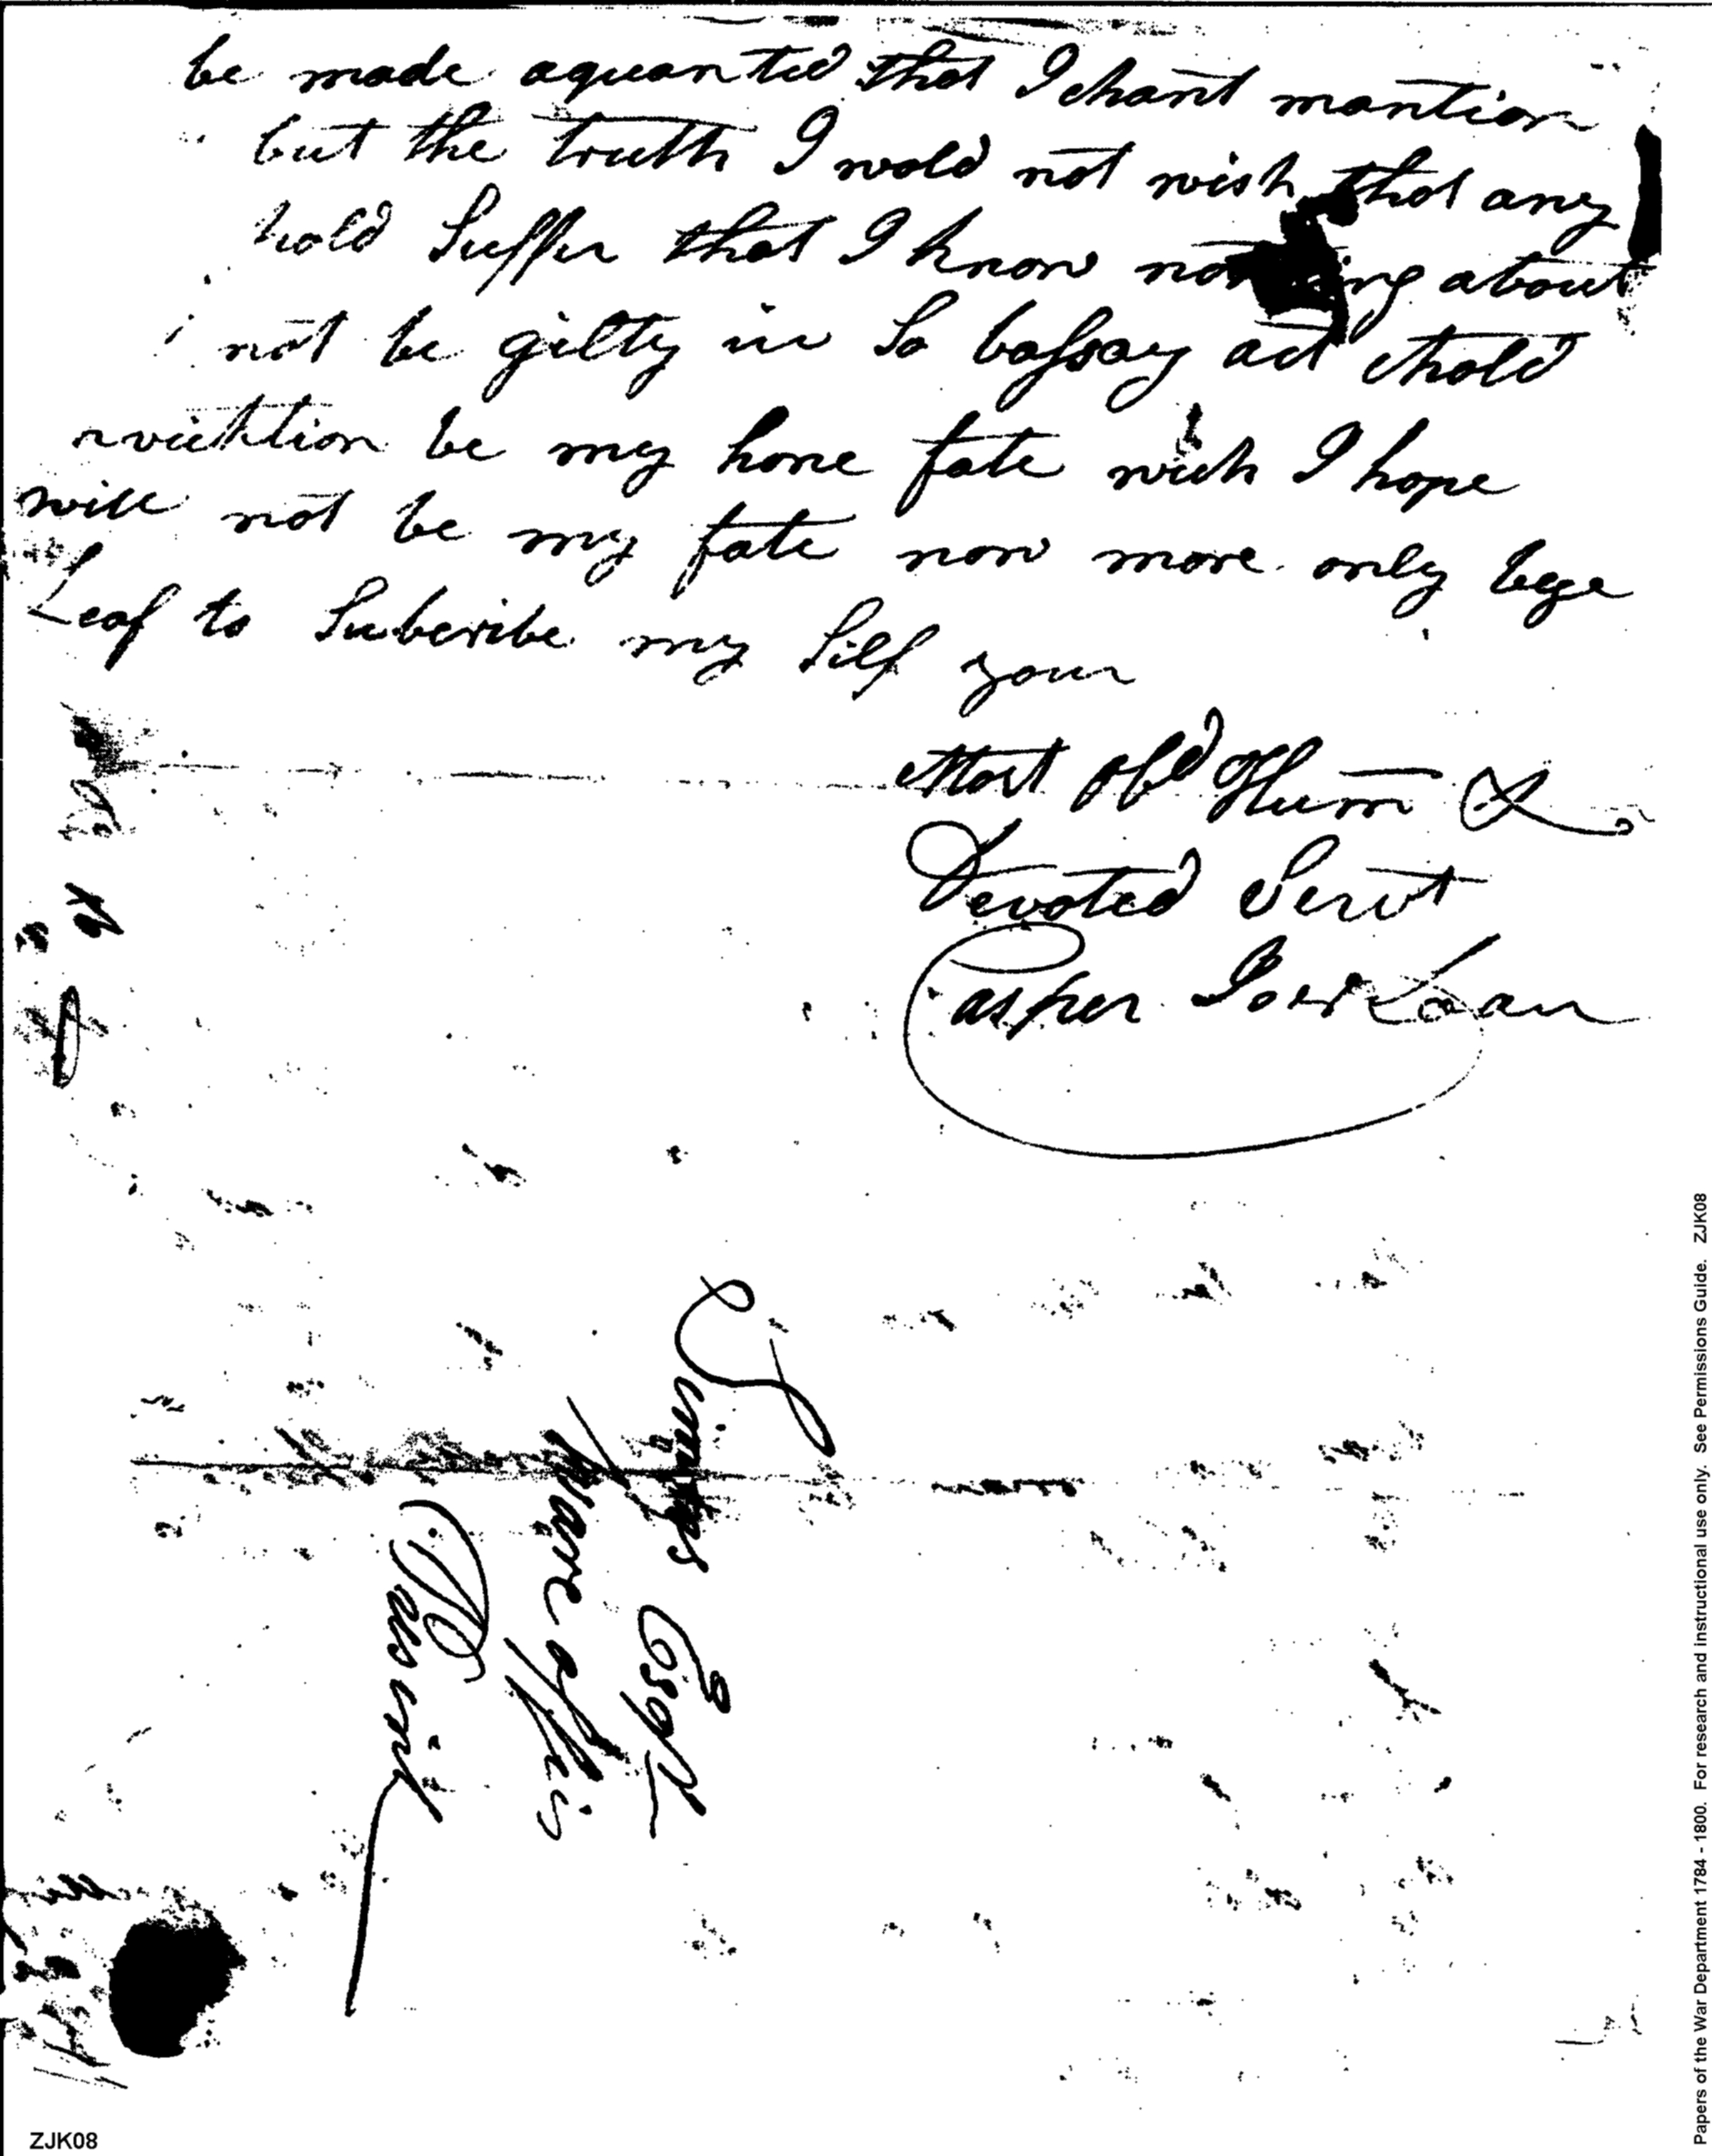 be made aquanted that I chant mantion
but the truth I wold not wish that any
hold Suffer that I know nothing about
not be gilty in So act
be my hone fate wich I hope
will not be my fate now more only bege
Leaf to Subcribe my Self your
Most Obd Hum &
Devoted Servt
Casper
Esqr
Ware offis
ZJK08
Papers of the War Department 1784 - 1800. For research and instructional use only. See Permissions Guide. ZJK08